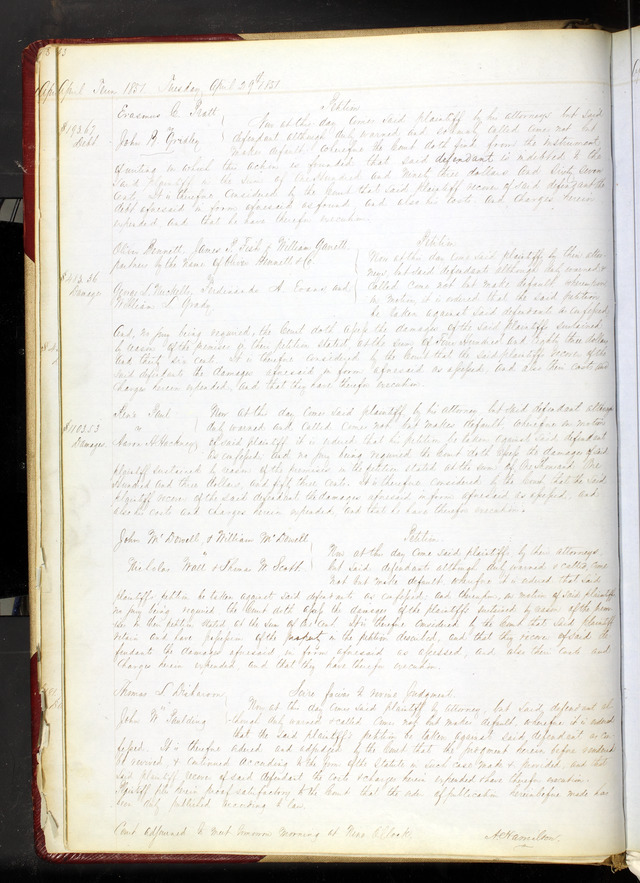 April Term 1851. Tuesday, April 29th 1851
Erasmus C. Pratt
vs
John R. Grisley
$193.67
Debt
Petition
Now at this day comes said plaintiff by his attorneys but said
defendant although duly warned and solemnly called comes not but
makes default, wherefore the Court doth find from the instrument
of writing on which this action is founded that said defendant is indebted to the
said plaintiff in the sum of One Hundred and Ninety three dollars and Sixty Seven
Cents. It is therefore considered by the Court that said plaintiff recover of said defendant the
debt aforesaid in form aforesaid as found, and also his costs and charges herein
expended, and that he have therefor execution.
Oliver Bennett, James P. Fisk & William
partners by the name of Oliver Bennett & Co.
vs
George L. Nuckolls, Ferdinando A. Evans and
William L. Grady
$483.36
Damages
Petition
Now at this day come said plaintiffs by their attor-
neys, but said defendants although duly warned &
called come not but make default, whereupon
on motion, it is ordered that the said petition
be taken against said defendants as confessed,
And, no jury being required, the Court doth assess the damages of the said Plaintiffs sustained
by reason of the premises in their petition stated at the sum of Four Hundred and eighty three dollars
and thirty six cents. It is therefore considered by the Court that the said plaintiffs recover of the
said defendants the damages aforesaid in form aforesaid as assessed, and also their costs and
charges herein expended, and that they have therefor execution.
vs
Aaron H. Hackney
$1103.53
Damages
Now at this day comes said plaintiff by his attorney but said defendant although
duly warned and called comes not but makes default, whereupon on motion
of said plaintiff it is ordered that his petition be taken against said defendant
as confessed. And no jury being required the Court doth assess the damages of said
plaintiff sustained by reason of the premises in the petition stated at the sum of One thousand One
Hundred and three dollars, and fifty three cents. It is therefore considered by the Court that the said
plaintiff recover of the said defendant the damages aforesaid in form aforesaid as assessed, and
also his costs and charges herein expended, and that he have therefor execution.
John McDowell, & William McDowell
vs
Nicholas Wall & Thomas W. Scott
Petition
Now at this day come said plaintiffs by their attorneys,
but said defendants although duly warned & called come
not but make default, wherefore it is ordered that said
plaintiffs petition be taken against said defendants as confessed, and thereupon, on motion of said plaintiffs
no jury being required the Court doth assess the damages of the plaintiffs sustained by reason of the prem-
ises in the petition stated at the sum of One cent. It is therefore considered by the Court that said plaintiffs
retain and have possession of the in the petition described, and that they recover of said de-
fendants the damages aforesaid in form aforesaid as assessed, and also their costs and
charges herein expended, and that they have therefor execution.
Thomas L. Dickerson
vs
John W. Paulding
Scire Facias to revive Judgment
Now at this day comes said plaintiff by attorney, but said defendant al-
though duly warned & called comes not but makes default, wherefore it is ordered
that the said plaintiffs petition be taken against said defendant as con-
fessed. It is therefore ordered and adjudged by the Court that the judgment herein before rendered
be revived & continued according to the form of the Statute in such case made & provided, and that
said plaintiff recover of said defendant the costs & charges herein expended & have therefor execution.
Plaintiff files herein proof satisfactory to the Court that the order of publication heretofore made has
been duly published according to law.
Court adjourned to meet tomorrow morning at Nine O'Clock.
A. Hamilton